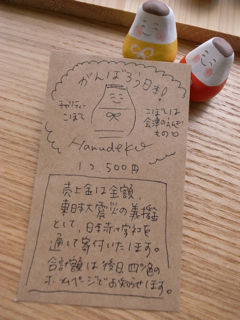 がんばろう日本!
チャリティー
こぼし
こぼしは
会津のえんぎ
もの
Hanadeko
1つ 500円
売上金は全額、
東日本大震災の義援金
として、日本赤十字社を
通して寄付いたします。
合計額は後日、
ホームページでお知らせします。